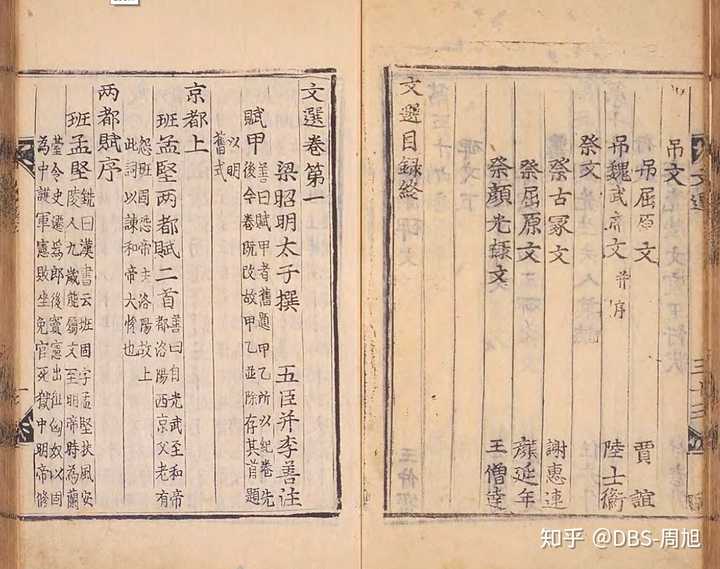 文選
吊文
吊屈原文 賈誼
吊魏武帝文 并序 陸士衡
祭文
祭古冢文 謝惠連
祭屈原文 顔延年
祭顏光祿文 王僧達
文選目録終
文選卷第一
梁昭明太子撰 五臣并李善註
賦甲 善曰賦甲者舊題甲乙所以紀卷先
後今卷既改故甲乙並除存其首題
以明
舊式
京都上
班孟堅兩都賦二首 善曰自光武至和帝
都洛陽西京父老有
怨班固恐帝去洛陽故上
此詞以諫和帝大恱也
两都賦序
班孟堅 銑曰漢書云班固字孟堅扶風安
陵人九歲能屬文至明帝時為蘭
臺令史遷爲郎後竇憲出征匈奴以固
為中護軍憲敗坐免官死獄中明帝修
知乎 @DBS-周旭